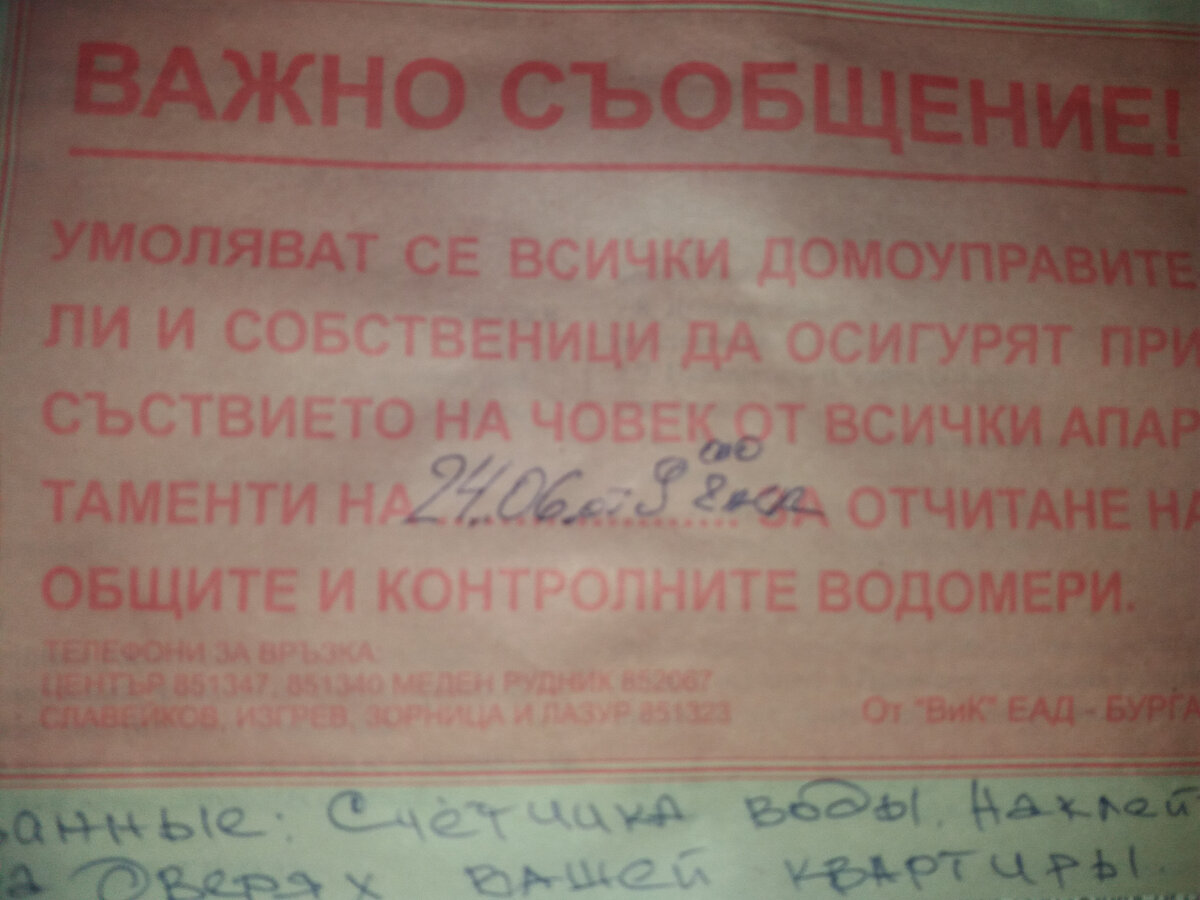 ВАЖНО СЪОБЩЕНИЕ!
УМОЛЯВАТ СЕ ВСИЧКИ ДОМОУПРАВИТЕ
ЛИ И СОБСТВЕНИЦИ ДА ОСИГУРЯТ ПРИ
СЪСТВИЕТО НА ЧОВЕК ОТ ВСИЧКИ АПАР
ТАМЕНТИ НА 24.06. от 9 ЗА ОТЧИТАНЕ НА
ОБЩИТЕ И КОНТРОЛНИТЕ ВОДОМЕРИ.
ТЕЛЕФОНИ ЗА ВРЪЗКА:
ЦЕНТЪР 851347, 851340 МЕДЕН РУДНИК 852067
СЛАВЕЙКОВ, ИЗГРЕВ, ЗОРНИЦА И ЛАЗУР 851323
От "ВиК" ЕАД - БУРГА
анные: Счётчика воды. Наклей
а Дверях вашей квартиры.